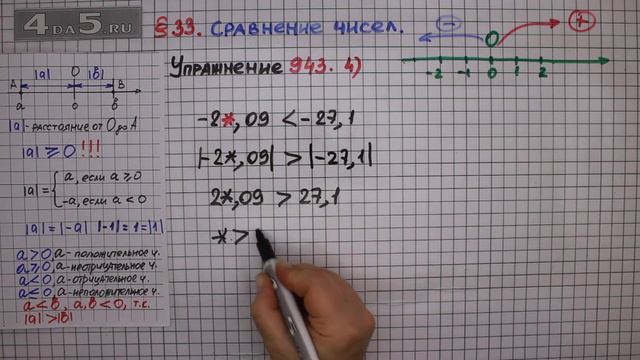 4DA5.RU
§33. Сравнение чисел.
Упражнение 943. 4)
− +
-2 -1 0 1 2
|a| O |B|
A B
a o b
|a|-расстояние от O до A
|a| ⩾ 0 !!!
|a| = { a, если a ⩾ 0
-a, если a < 0
|a| = |-a| |-1| = 1 = |1|
a > 0, a - положительное ч.
a ⩾ 0, a - неотрицательное ч.
a < 0, a - отрицательное ч.
a ⩽ 0, a - неположительное ч.
a < b, a, b < 0, т.к.
|a| > |b|
-2*,09 < -27,1
|-2*,09| > |-27,1|
2*,09 > 27,1
* >